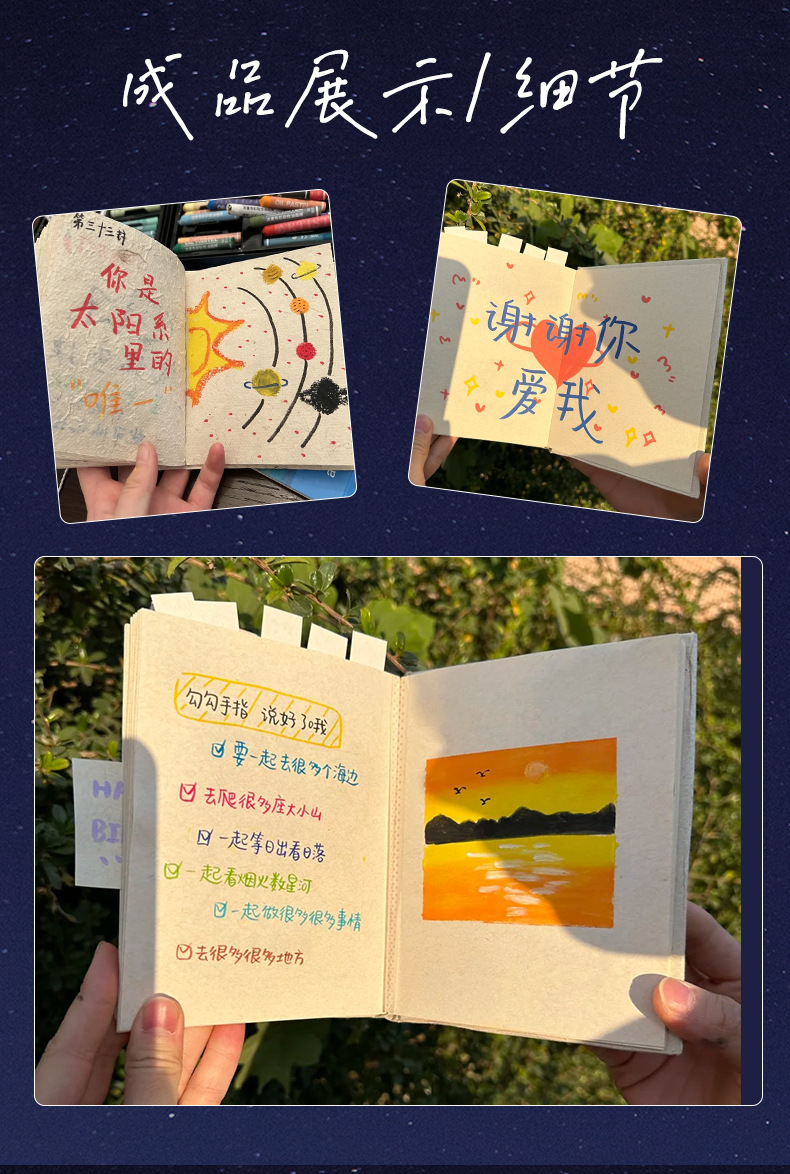 成品展示/细节
第三十三封
你是
太阳系
里的
"唯一"
谢谢你
爱我
勾勾手指 说好了哦
要一起去很多个海边
去爬很多座大小山
一起等日出看日落
一起看烟火数星河
一起做很多很多事情
去很多很多地方
HA
BI